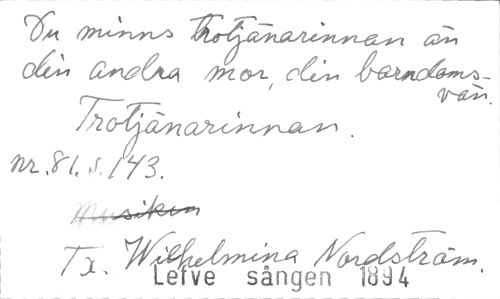 Du minns trotjänarinnan än
din andra mor, din barndoms-
vän.
Trotjänarinnan.
nr. 81. s. 143.
Musiken
Tx. Wilhelmina Nordström.
Lefve sången 1894